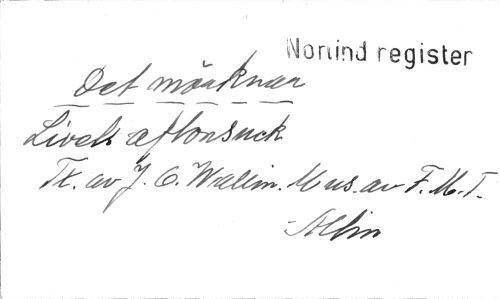 Norlind register
Det mörknar
Livets aftonsuck
Tx. av J. O. Wallin. Mus. av F. M. T.
Albin